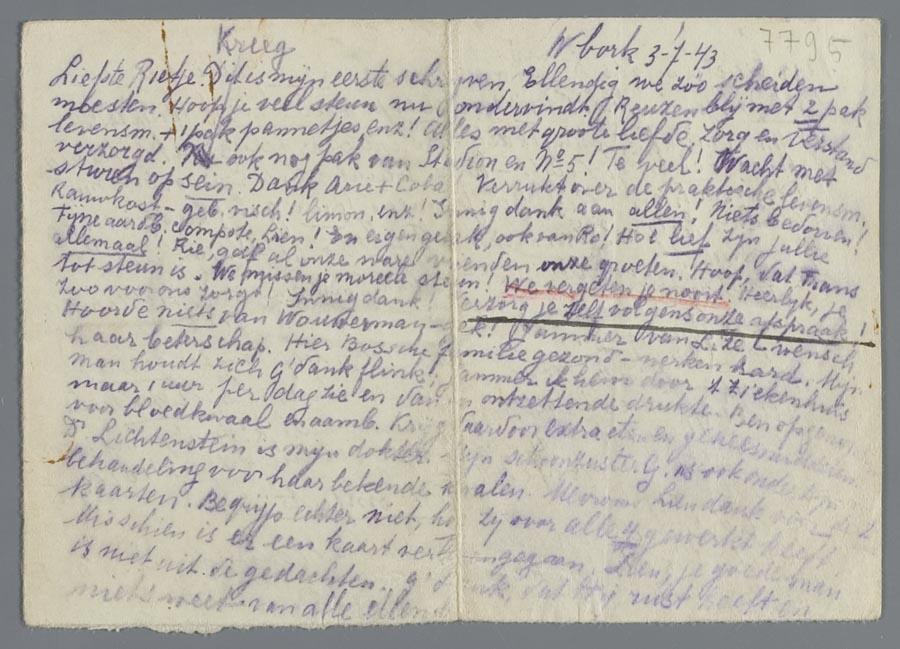 Kreeg W bork 3-7-43 7795
Liefste Rietje. Dit is mijn eerste schrijven. Ellendig we zóó scheiden
moesten. Hoop je veel steun nu ondervindt. Reuzenblij met 2 pak
levensm. + 1 pak pannetjes, enz! Alles met groote liefde, zorg en verstand
verzorgd. ook nog pak van Stadion en No 5! Te veel! Wacht met
sturen op sein. Dank Arie + Coba Verrukt over de praktische levensm.
Rauwkost - geb. visch! limon. enz! Innig dank aan allen! Niets bedorven!
Fijne aardb. compote, Lien! En eigengemaakt, ook van Ro! Hoe lief zijn jullie
allemaal! Rie, geef al onze ware vrienden onze groeten. Hoop, dat Frans
tot steun is. We missen je moreele steun! We vergeten je nooit. Heerlijk, je
zoo voor ons zorgt! Innig dank! Verzorg je zelf volgens onze afspraak!
Hoorde niets van Jammer van Lize wensch
haar beterschap. Hier Bossche familie gezond - werken hard. Mijn
man houdt zich G'dank flink! Jammer ik hem door 't ziekenhuis
maar 1 uur per dag zie en dan ontzettende drukte. Ben opgenomen
voor bloedkwaal en aamb. Krijg daardoor extra eten en geneesmiddelen.
Dr Lichtenstein is mijn dokter. Mijn schoonzuster G. is ook onder zijn
behandeling voor haar bekende kwalen. Mevrouw Lien dank voor de 2
kaarten. Begrijp echter niet, hoe zij over alle 4 gewerkt heeft
Misschien is er een kaart Lien, je goede man
is niet uit de gedachten. G'dank, dat Hij rust heeft en
niets weet van alle ellende